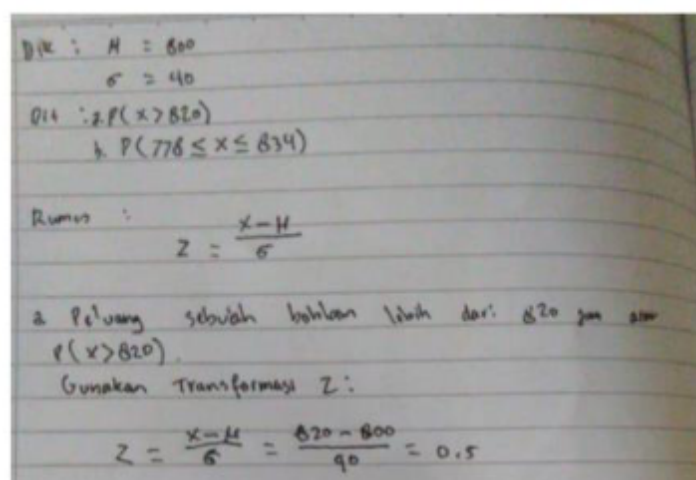 Dik : μ = 800
σ = 40
Dit : a. P(x > 820)
b. P(778 ≤ x ≤ 834)
Rumus :
Z = (x - μ) / σ
a Peluang sebuah bohlam lebih dari 820 jam atau
P(x > 820).
Gunakan Transformasi Z :
Z = (x - μ) / σ = (820 - 800) / 40 = 0.5